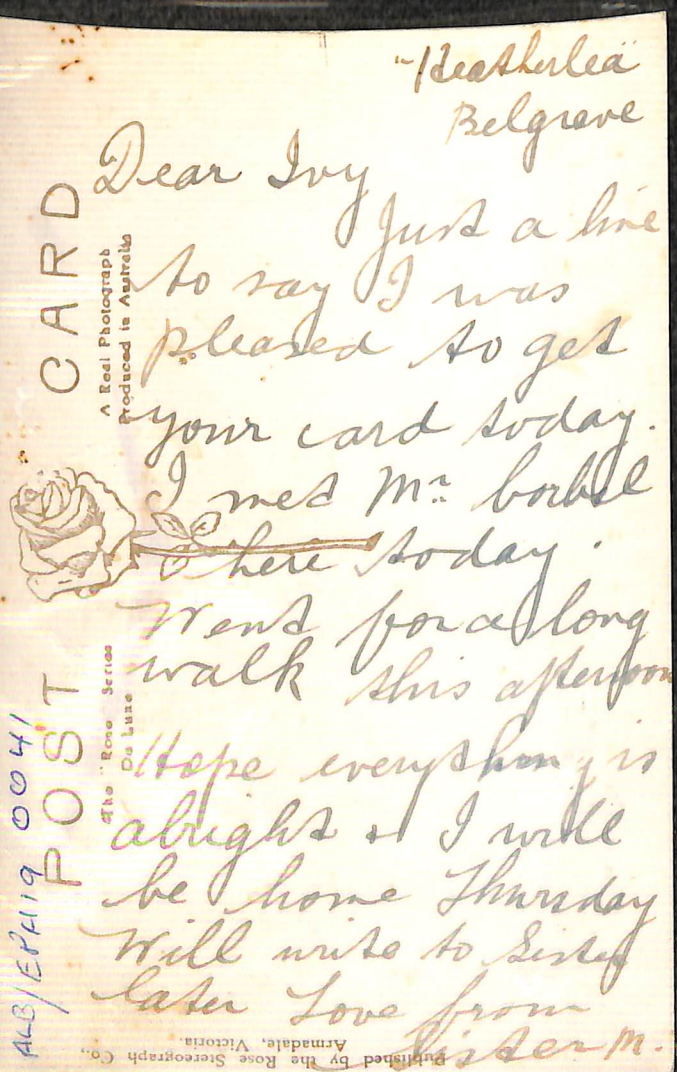 "Heatherlea"
Belgrave
Dear Ivy
Just a line
to say I was
pleased to get
your card today.
I met Mr
here today.
Went for a long
walk this afternoon
Hope everything is
alright + I will
be home Thursday
Will write to Sister
later Love from
Sister M.
POST CARD
A Real Photograph
Produced in Australia
The "Rose" Series
De Luxe
Published by the Rose Stereograph Co.,
Armadale, Victoria.
ALB/EPH19 0041